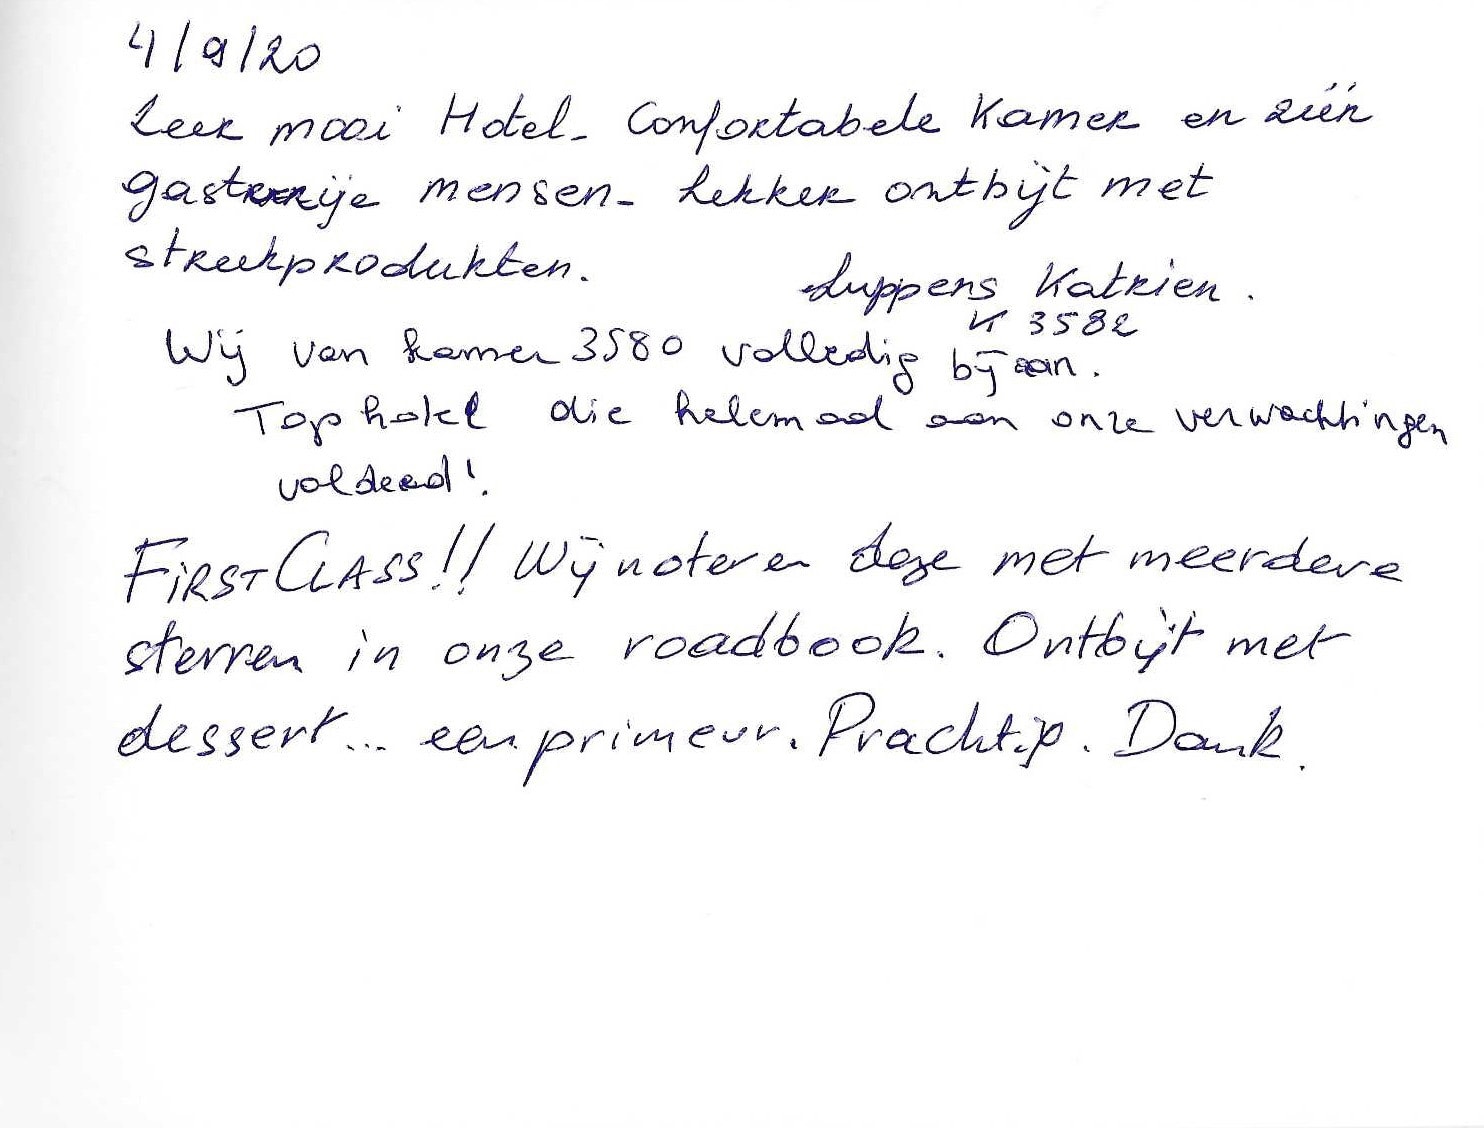 4/9/20
Zeer mooi Hotel - Confortabele Kamer en zéér
gastvrije mensen - Lekker ontbijt met
streekprodukten.
Luppens Katrien.
K 3582
Wij van kamer 3580 volledig bij aan.
Top hotel die helemaal aan onze verwachtingen
voldeed!
FIRST CLASS!! Wij noteren deze met meerdere
sterren in onze roadbook. Ontbijt met
dessert... een primeur. Prachtig. Dank.